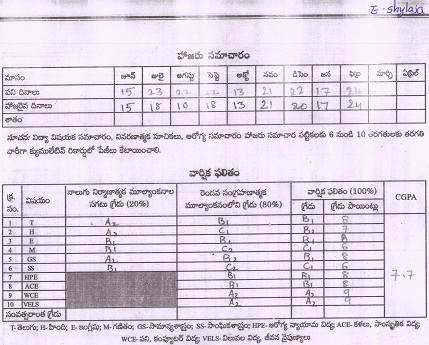 E. shylaja
హాజరు సమాచారం
మాసం జూన్ జులై ఆగస్టు సెప్టె అక్టో నవం డిసెం జన ఫిబ్ర మార్చి ఏప్రిల్
పని దినాలు 15 23 22 22 13 21 22 17 24
హాజరైన దినాలు 15 18 10 18 13 21 20 17 24
శాతం
సూచన: విద్యా విషయక సమాచారం, వివరణాత్మక సూచికలు, ఆరోగ్య సమాచారం హాజరు సమాచార పట్టికలకు 6 నుండి 10 తరగతులకు తరగతి
వారీగా క్యుములేటివ్ రికార్డులో పేజీలు కేటాయించాలి.
వార్షిక ఫలితం
క్ర. సం. విషయం నాలుగు నిర్మాణాత్మక మూల్యాంకనాల సగటు గ్రేడు (20%) రెండవ సంగ్రహణాత్మక మూల్యాంకనంలోని గ్రేడు (80%) వార్షిక ఫలితం (100%) CGPA
గ్రేడు గ్రేడు పాయింట్లు
1 T A2 B1 B1 8
2 H A2 C1 B2 7
3 E B1 B1 B1 8
4 M B1 C2 C1 6
5 GS A2 B2
6 SS B1 C2 C1 6
7 HPE B1 B1 8 7.7
8 ACE B1 B1 8
9 WCE A2 A2 9
10 VELS A2 A2 9
సంవత్సరాంత గ్రేడు
T- తెలుగు; H-హిందీ; E- ఇంగ్లీషు; M- గణితం; GS- సామాన్యశాస్త్రం; SS- సాంఘికశాస్త్రం; HPE- ఆరోగ్య వ్యాయామ విద్య; ACE- కళలు, సాంస్కృతిక విద్య;
WCE- పని, కంప్యూటర్ విద్య; VELS- విలువల విద్య, జీవన నైపుణ్యాలు